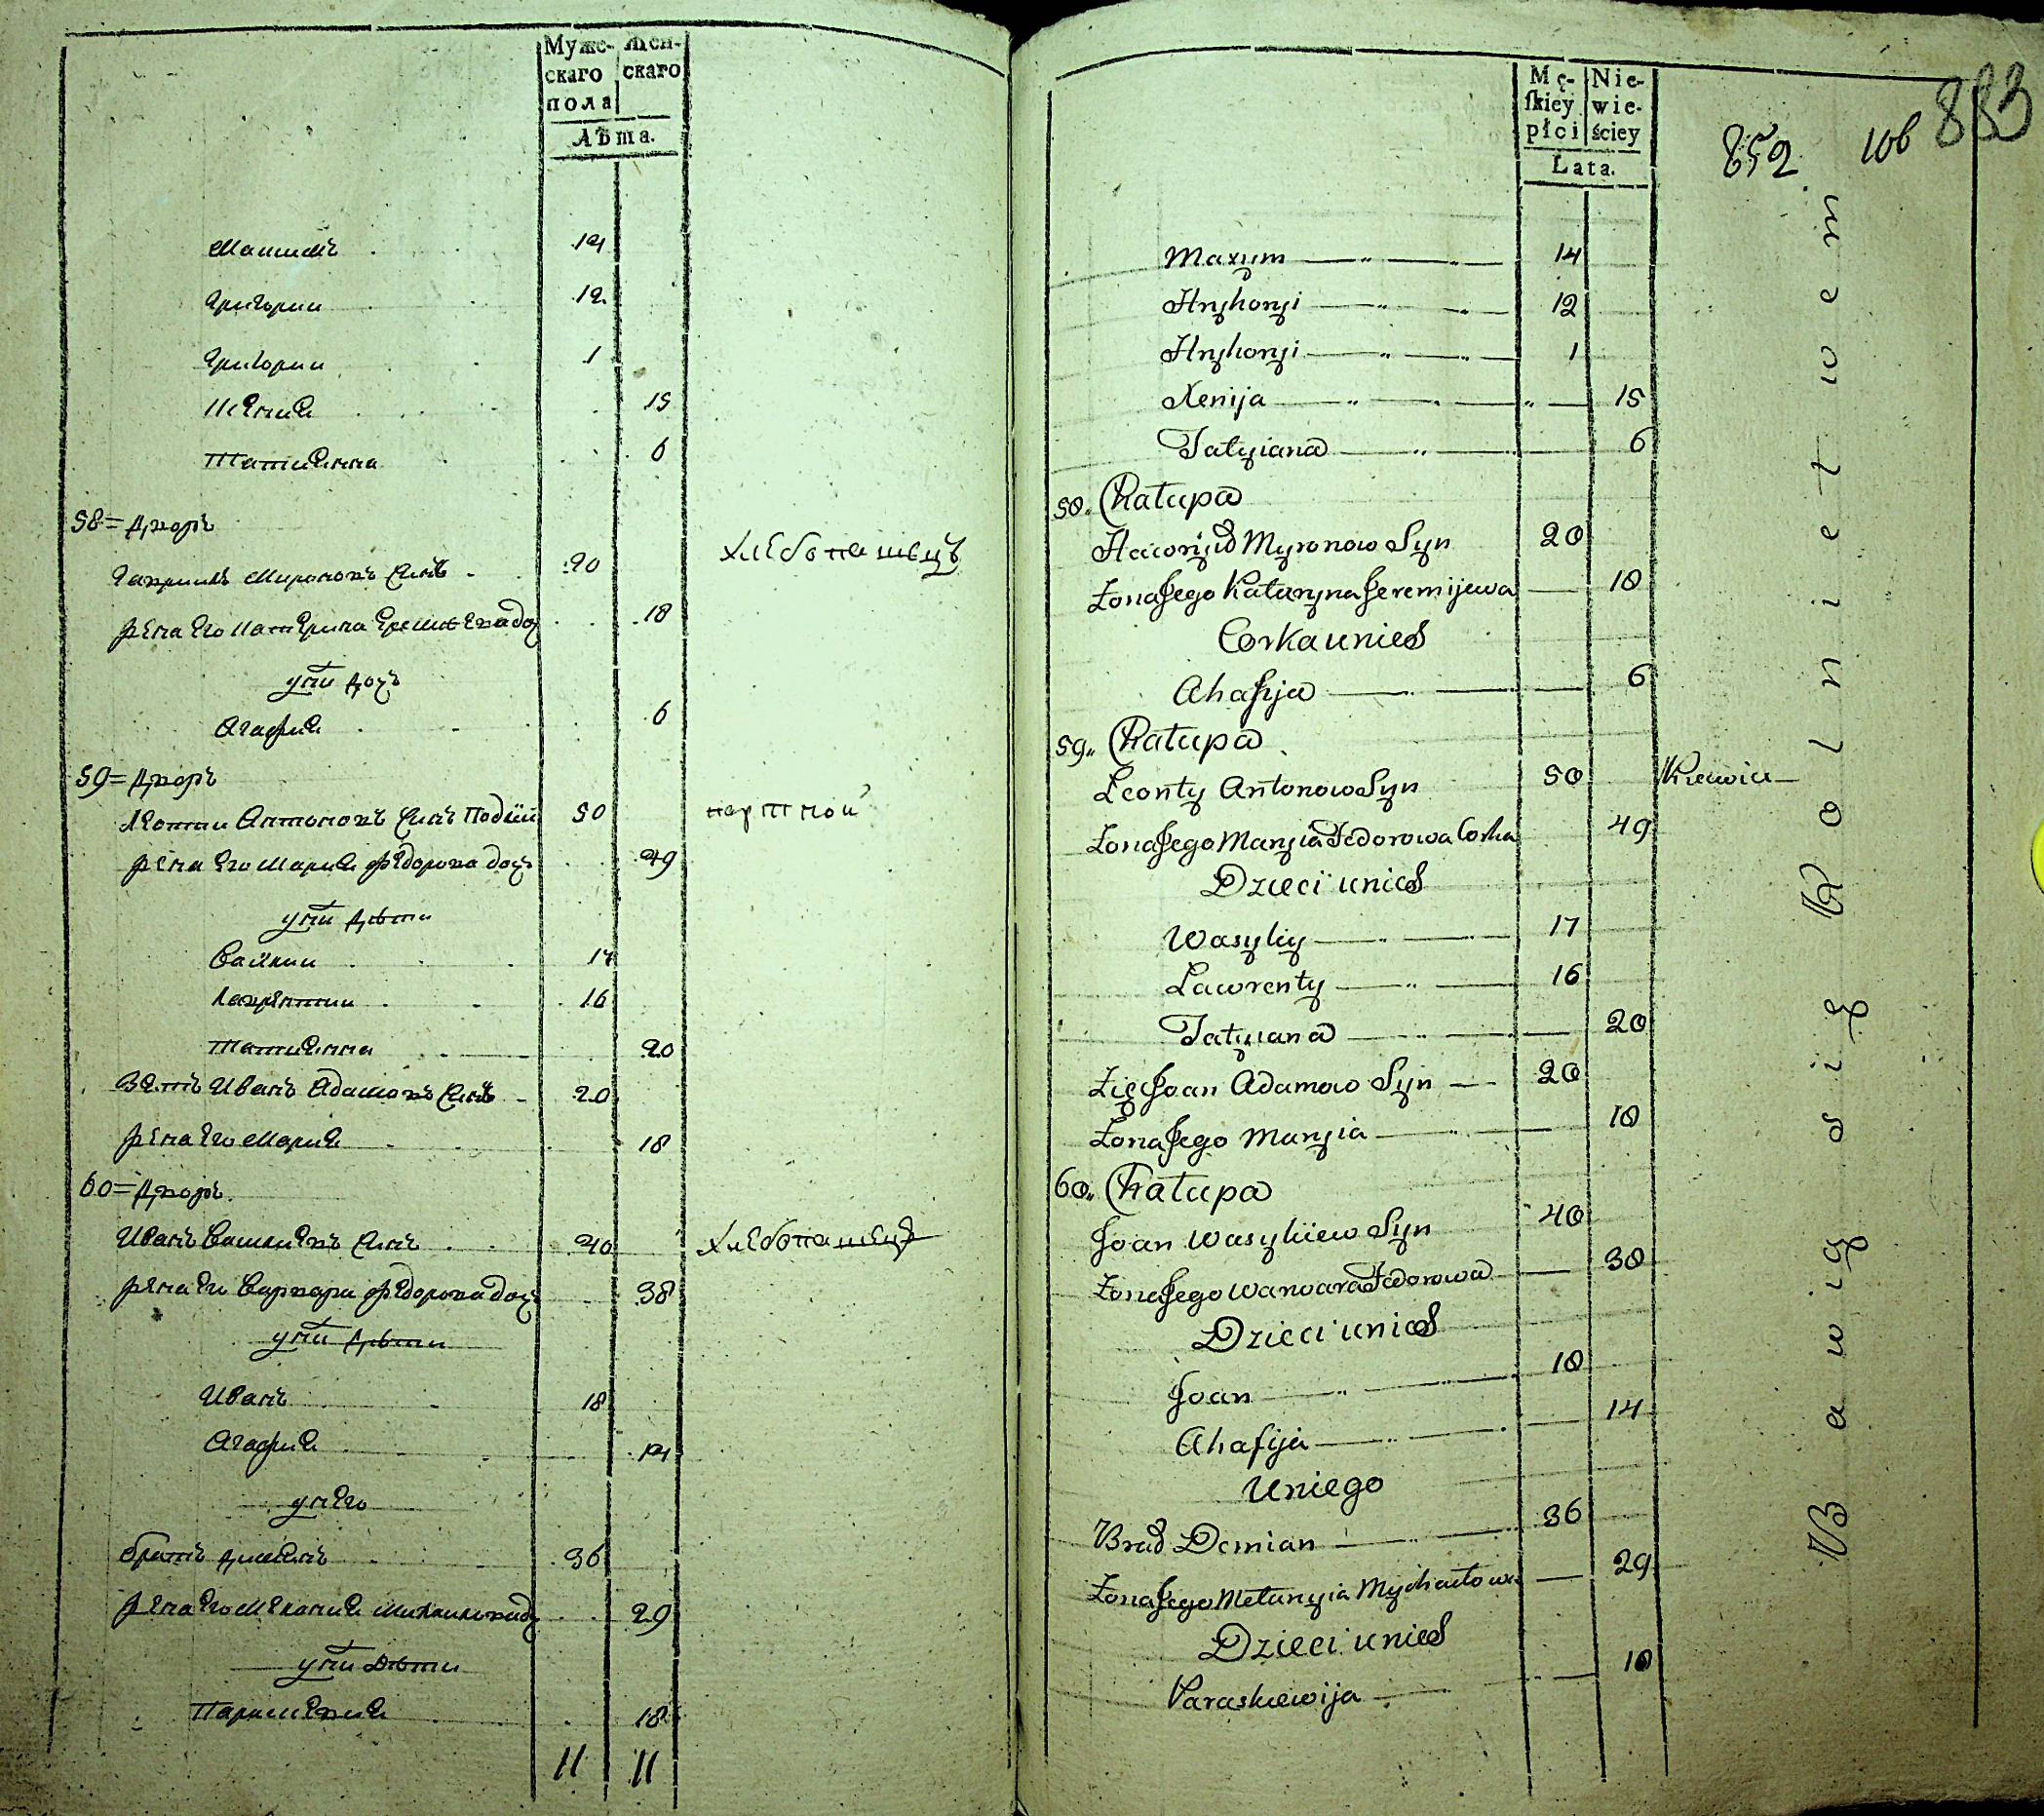 Муже-
скаго
пола
Жен-
скаго
Лѣта.
Максимъ 14
Григории 12
Григории 1
Ксения 15
Татиянна 6
58 = Дворъ
Гавриилъ Мироновъ Синъ 20 Хлебопашецъ
Жена Его Катерина 18
у них Дочь
Агафия 6
59 = Дворъ
Леонти Антоновъ Синъ 50 портной
Жена Его Мария Федорова дочь 49
у них Дѣти
Василии 17
Лаврентии 16
Татиянна 20
Зять Иванъ Адамовъ Синъ 20
Жена Его Мария 18
60 = Дворъ
Иванъ Васильевъ Синъ 40 Хлебопашец
Жена Его Варвара Федорова дочь 38
у них Дѣти
Иванъ 18
Агафия 14
у него
братъ Димиянъ 36
Жена Его Мелания 29
у них Дѣти
Параскевия 18
11 11
Mę-
ſkiey
płci
Nie-
wie-
ściey
Lata.
852 106 883
Maxym 14
Hryhoryi 12
Hryhoryi 1
Xenija 15
Tatyiana 6
58. Chałupa
Hawryło Myronow Syn 20
Żona Jego Kataryna Jeremijewa 18
Corka u nich
Ahafija 6
59. Chałupa
Leonty Antonow Syn 50 Krawiec
Żona Jego Maryia Fedorowa Corka 49
Dzieci u nich
Wasyliy 17
Lawrenty 16
Tatyiana 20
Zięć Joan Adamow Syn 20
Żona Jego Maryia 18
60. Chałupa
Joan Wasyliiew Syn 40
Żona Jego Warwara Fedorowa 38
Dzieci u nich
Joan 18
Ahafija 14
U niego
Brat Demian 36
Żona Jego Melanyia Mychailowa 29
Dzieci u nich
Paraskiewija 18
Bawią się Rolnictwem